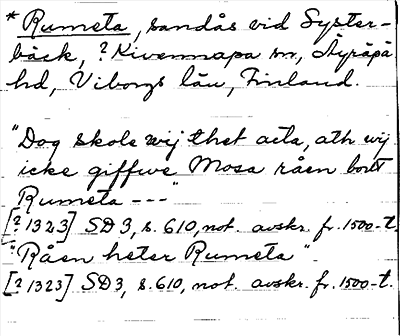 * Rumeta, sandås vid Syster-
bäck, ? Kivennapa sn, Äyräpä
hd, Viborgs län, Finland.
"Dog skole wij thet acta, ath wij
icke giffwe Mosa råen bort
Rumeta ---"
[? 1323] SD 3, s. 610, not. avskr. fr. 1500-t.
"Råen heter Rumeta".
[? 1323] SD 3, s. 610, not. avskr. fr. 1500-t.